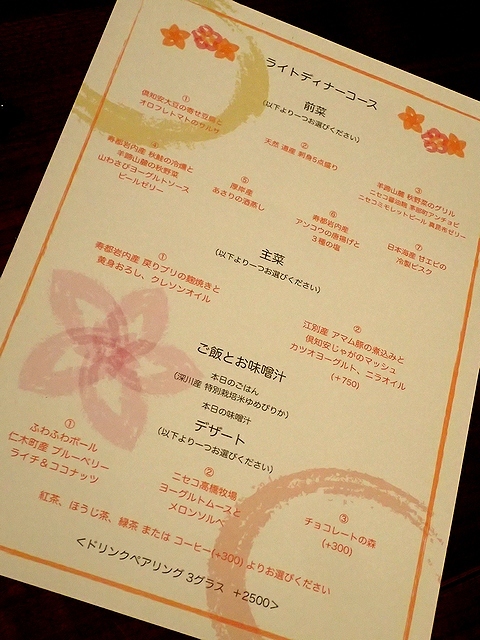 ライトディナーコース
前菜
(以下より一つお選びください)
①
倶知安大豆の寄せ豆腐と
オロフレトマトのサルサ
②
天然 道産 刺身5点盛り
③
羊蹄山麓 秋野菜のグリル
ニセコ醤油麹 寿都町アンチョビ
ニセコミモレットビール 真昆布ゼリー
④
寿都岩内産 秋鮭の冷燻と
羊蹄山麓の秋野菜
山わさびヨーグルトソース
ビールゼリー
⑤
厚岸産
あさりの酒蒸し
⑥
寿都岩内産
アンコウの唐揚げと
3種の塩
⑦
日本海産 甘エビの
冷製ビスク
主菜
(以下より一つお選びください)
①
寿都岩内産 戻りブリの麹焼きと
黄身おろし、クレソンオイル
②
江別産 アマム豚の煮込みと
倶知安じゃがのマッシュ
カツオヨーグルト、ニラオイル
(+780)
ご飯とお味噌汁
本日のごはん
(深川産 特別栽培米ゆめぴりか)
本日の味噌汁
デザート
(以下より一つお選びください)
①
ふわふわボール
仁木町産 ブルーベリー
ライチ&ココナッツ
②
ニセコ高橋牧場
ヨーグルトムースと
メロンソルベ
③
チョコレートの森
(+300)
紅茶、ほうじ茶、緑茶 または コーヒー(+300) よりお選びください
<ドリンクペアリング 3グラス +2500>